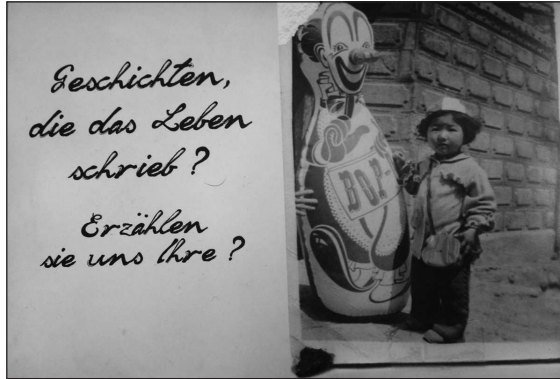 Geschichten,
die das Leben
schrieb?
Erzählen
sie uns Ihre?